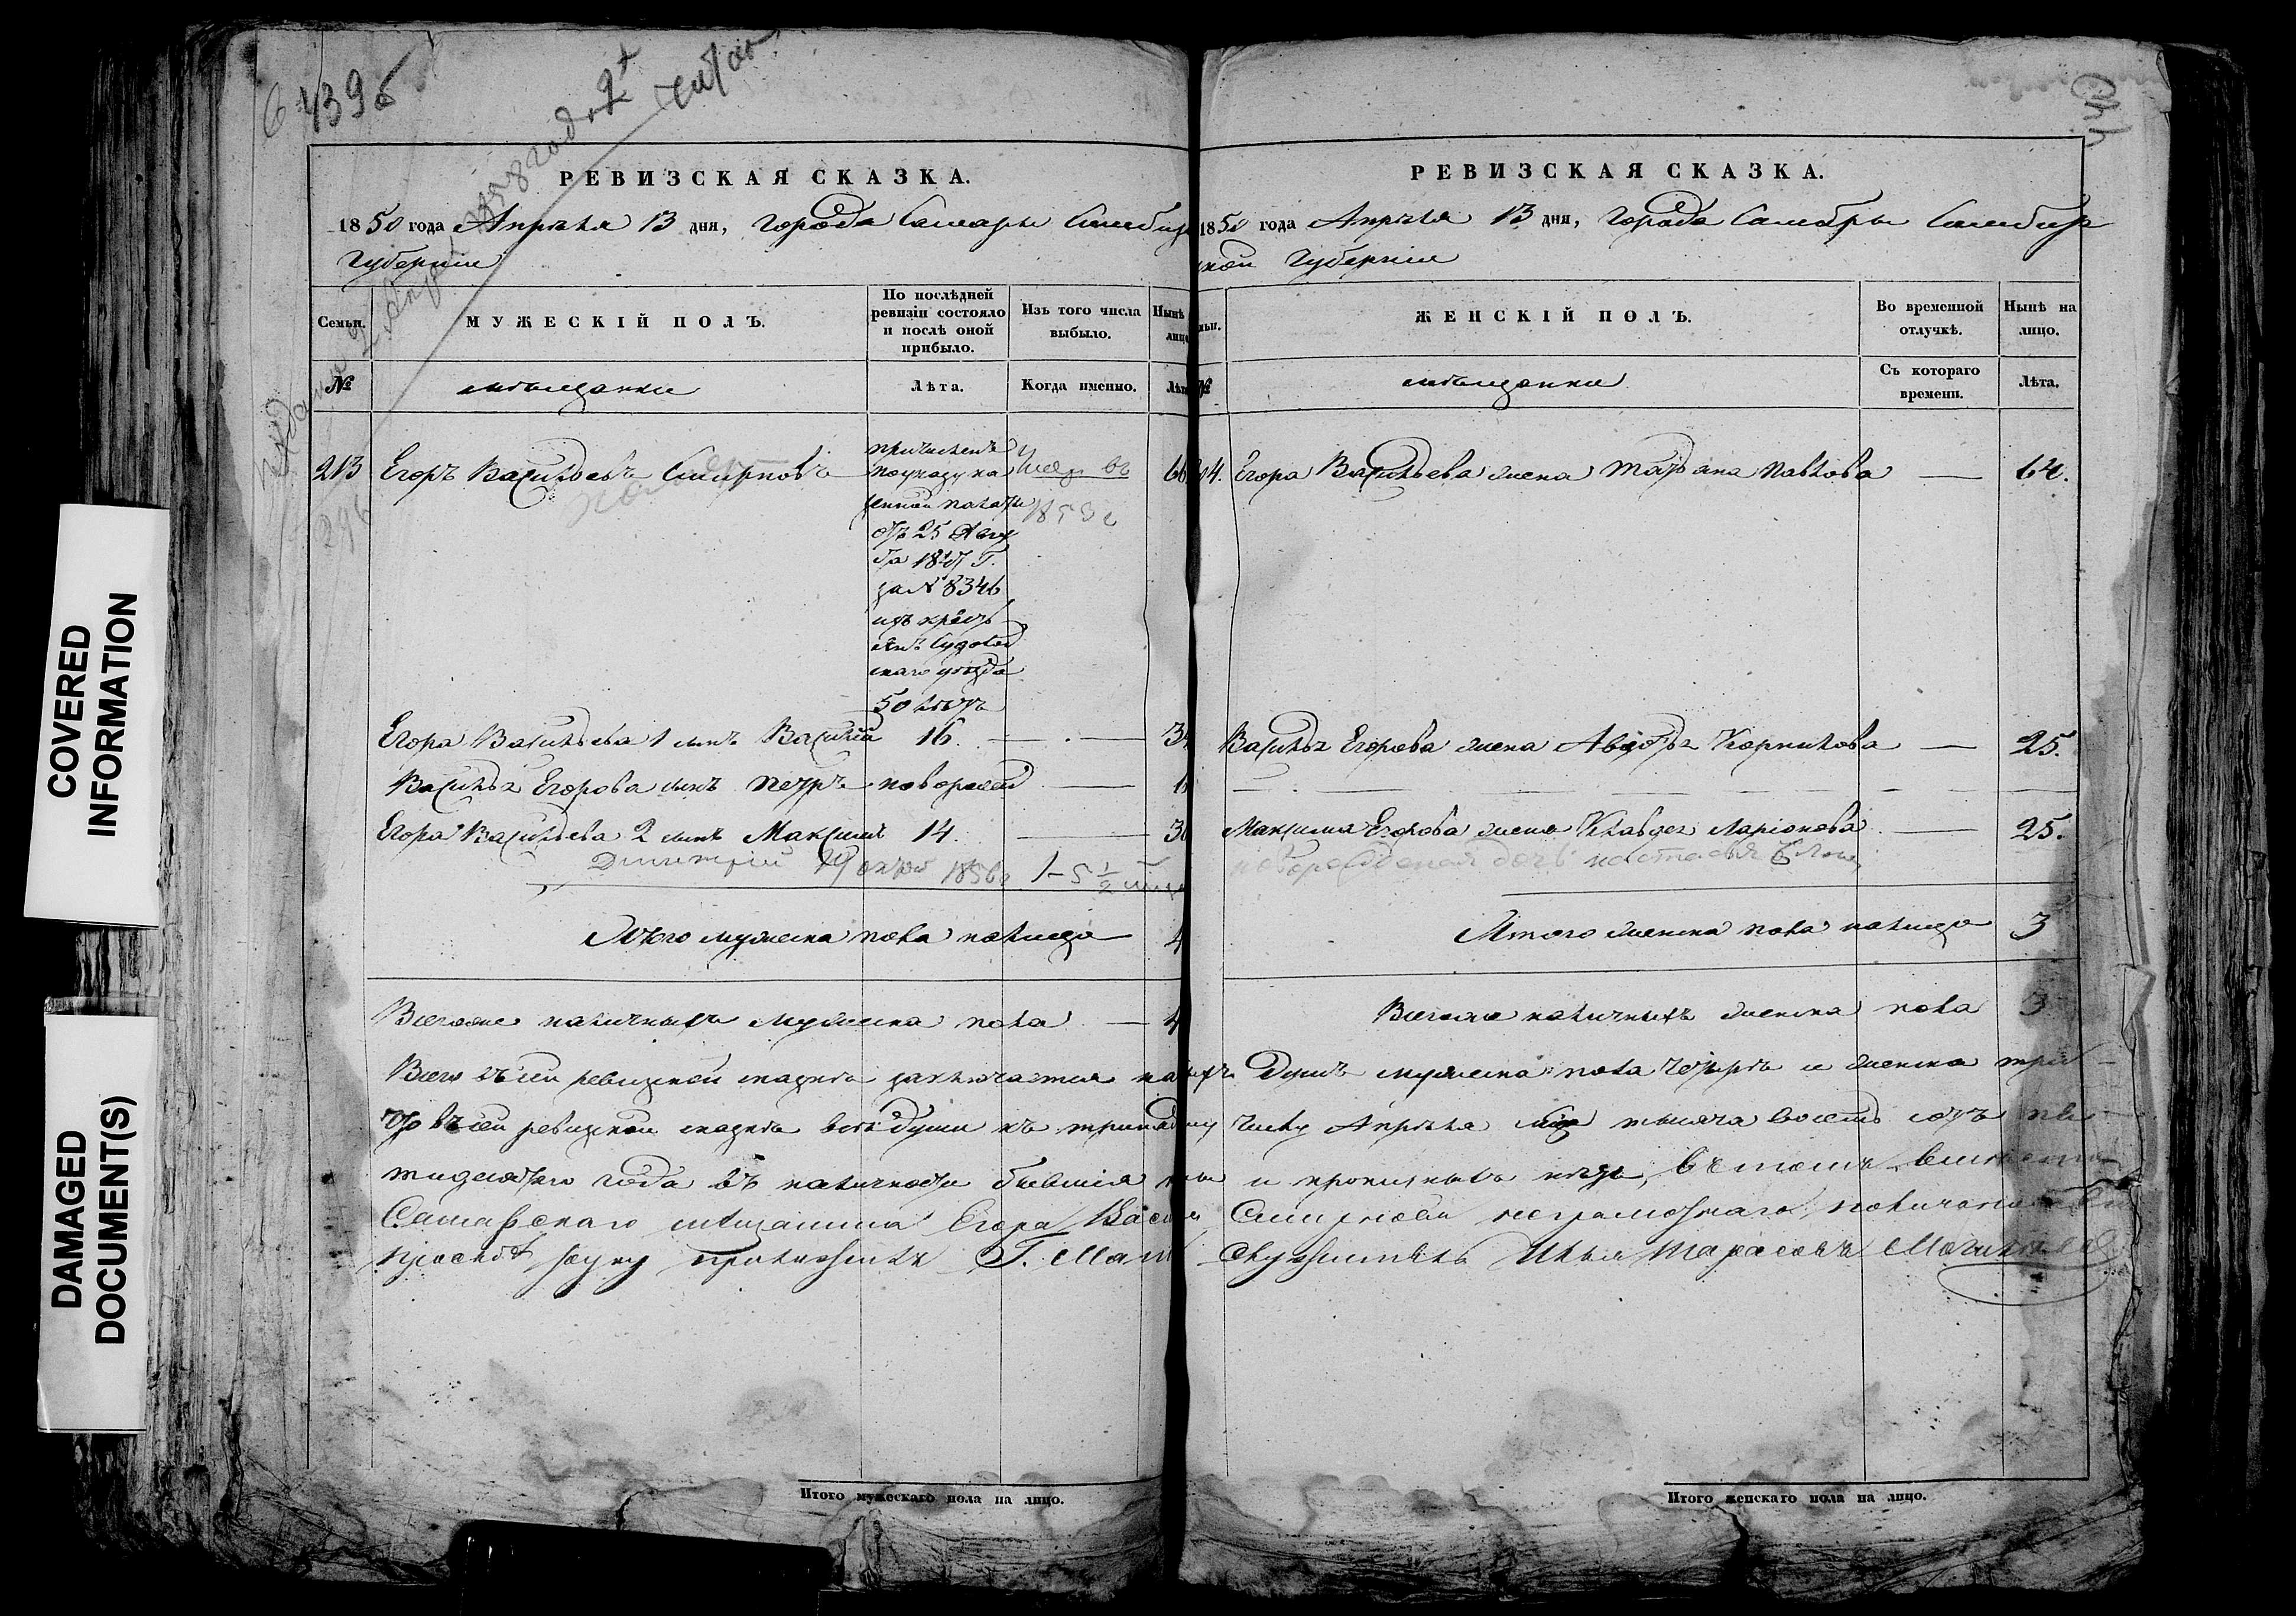 439б
РЕВИЗСКАЯ СКАЗКА.
1850 года Апрѣля 13 дня, города Самары Симбир
Губерніи
Семьи.
МУЖЕСКІЙ ПОЛЪ.
По послѣдней ревизіи состояло и послѣ оной прибыло.
Изъ того числа выбыло.
Нынѣ
лицо
№
мѣщанки
Лѣта.
Когда именно.
Лѣт
213 Егоръ Васильевъ Смирновъ
причисленъ
по указу ка
зенной палаты
отъ 25 Авгу
ста 18
за № 8346
изъ кресть
янъ
скаго уѣзда
50 лѣтъ
въ
1853
Егора Васильева 1 сынъ Василій 16. — 34
Васильа Егорова сынъ Петръ новорожд —
Егора Васильева 2 сынъ Максимъ 14. — 30
Дмитрій
Итого мужеска пола налицо 4
Всего наличныхъ мужеска пола — 4
РЕВИЗСКАЯ СКАЗКА.
1850 года Апрѣля 13 дня, города Самары Симбир
ской Губерніи
ЖЕНСКІЙ ПОЛЪ.
Во временной отлучкѣ.
Нынѣ на лицо.
№
мѣщанки
Съ котораго времени.
Лѣта.
Егора Васильева жена Татьяна Павлова — 64.
Васильа Егорова жена Авдотья Корнилова — 25.
Максима Егорова жена Клавдея Ларіонова — 25.
дочь Настасья
Итого женска пола налицо 3
Всего наличныхъ женска пола 3
Всего въ сей ревизской сказкѣ заключается на душъ мужеска пола четыре и женска три
въ сей ревизской сказкѣ всѣ души къ тринадцатому числу Апрѣля тысяча восемь сотъ пя
тидесятаго года въ наличности бывшія и прописныхъ нѣтъ, въ томъ
Самарскаго мѣщанина Егора Смирнова неграмотнаго
руку приложилъ Илья Тарасовъ
Итого мужескаго пола на лицо.
Итого женскаго пола на лицо.
COVERED
INFORMATION
DAMAGED
DOCUMENT(S)